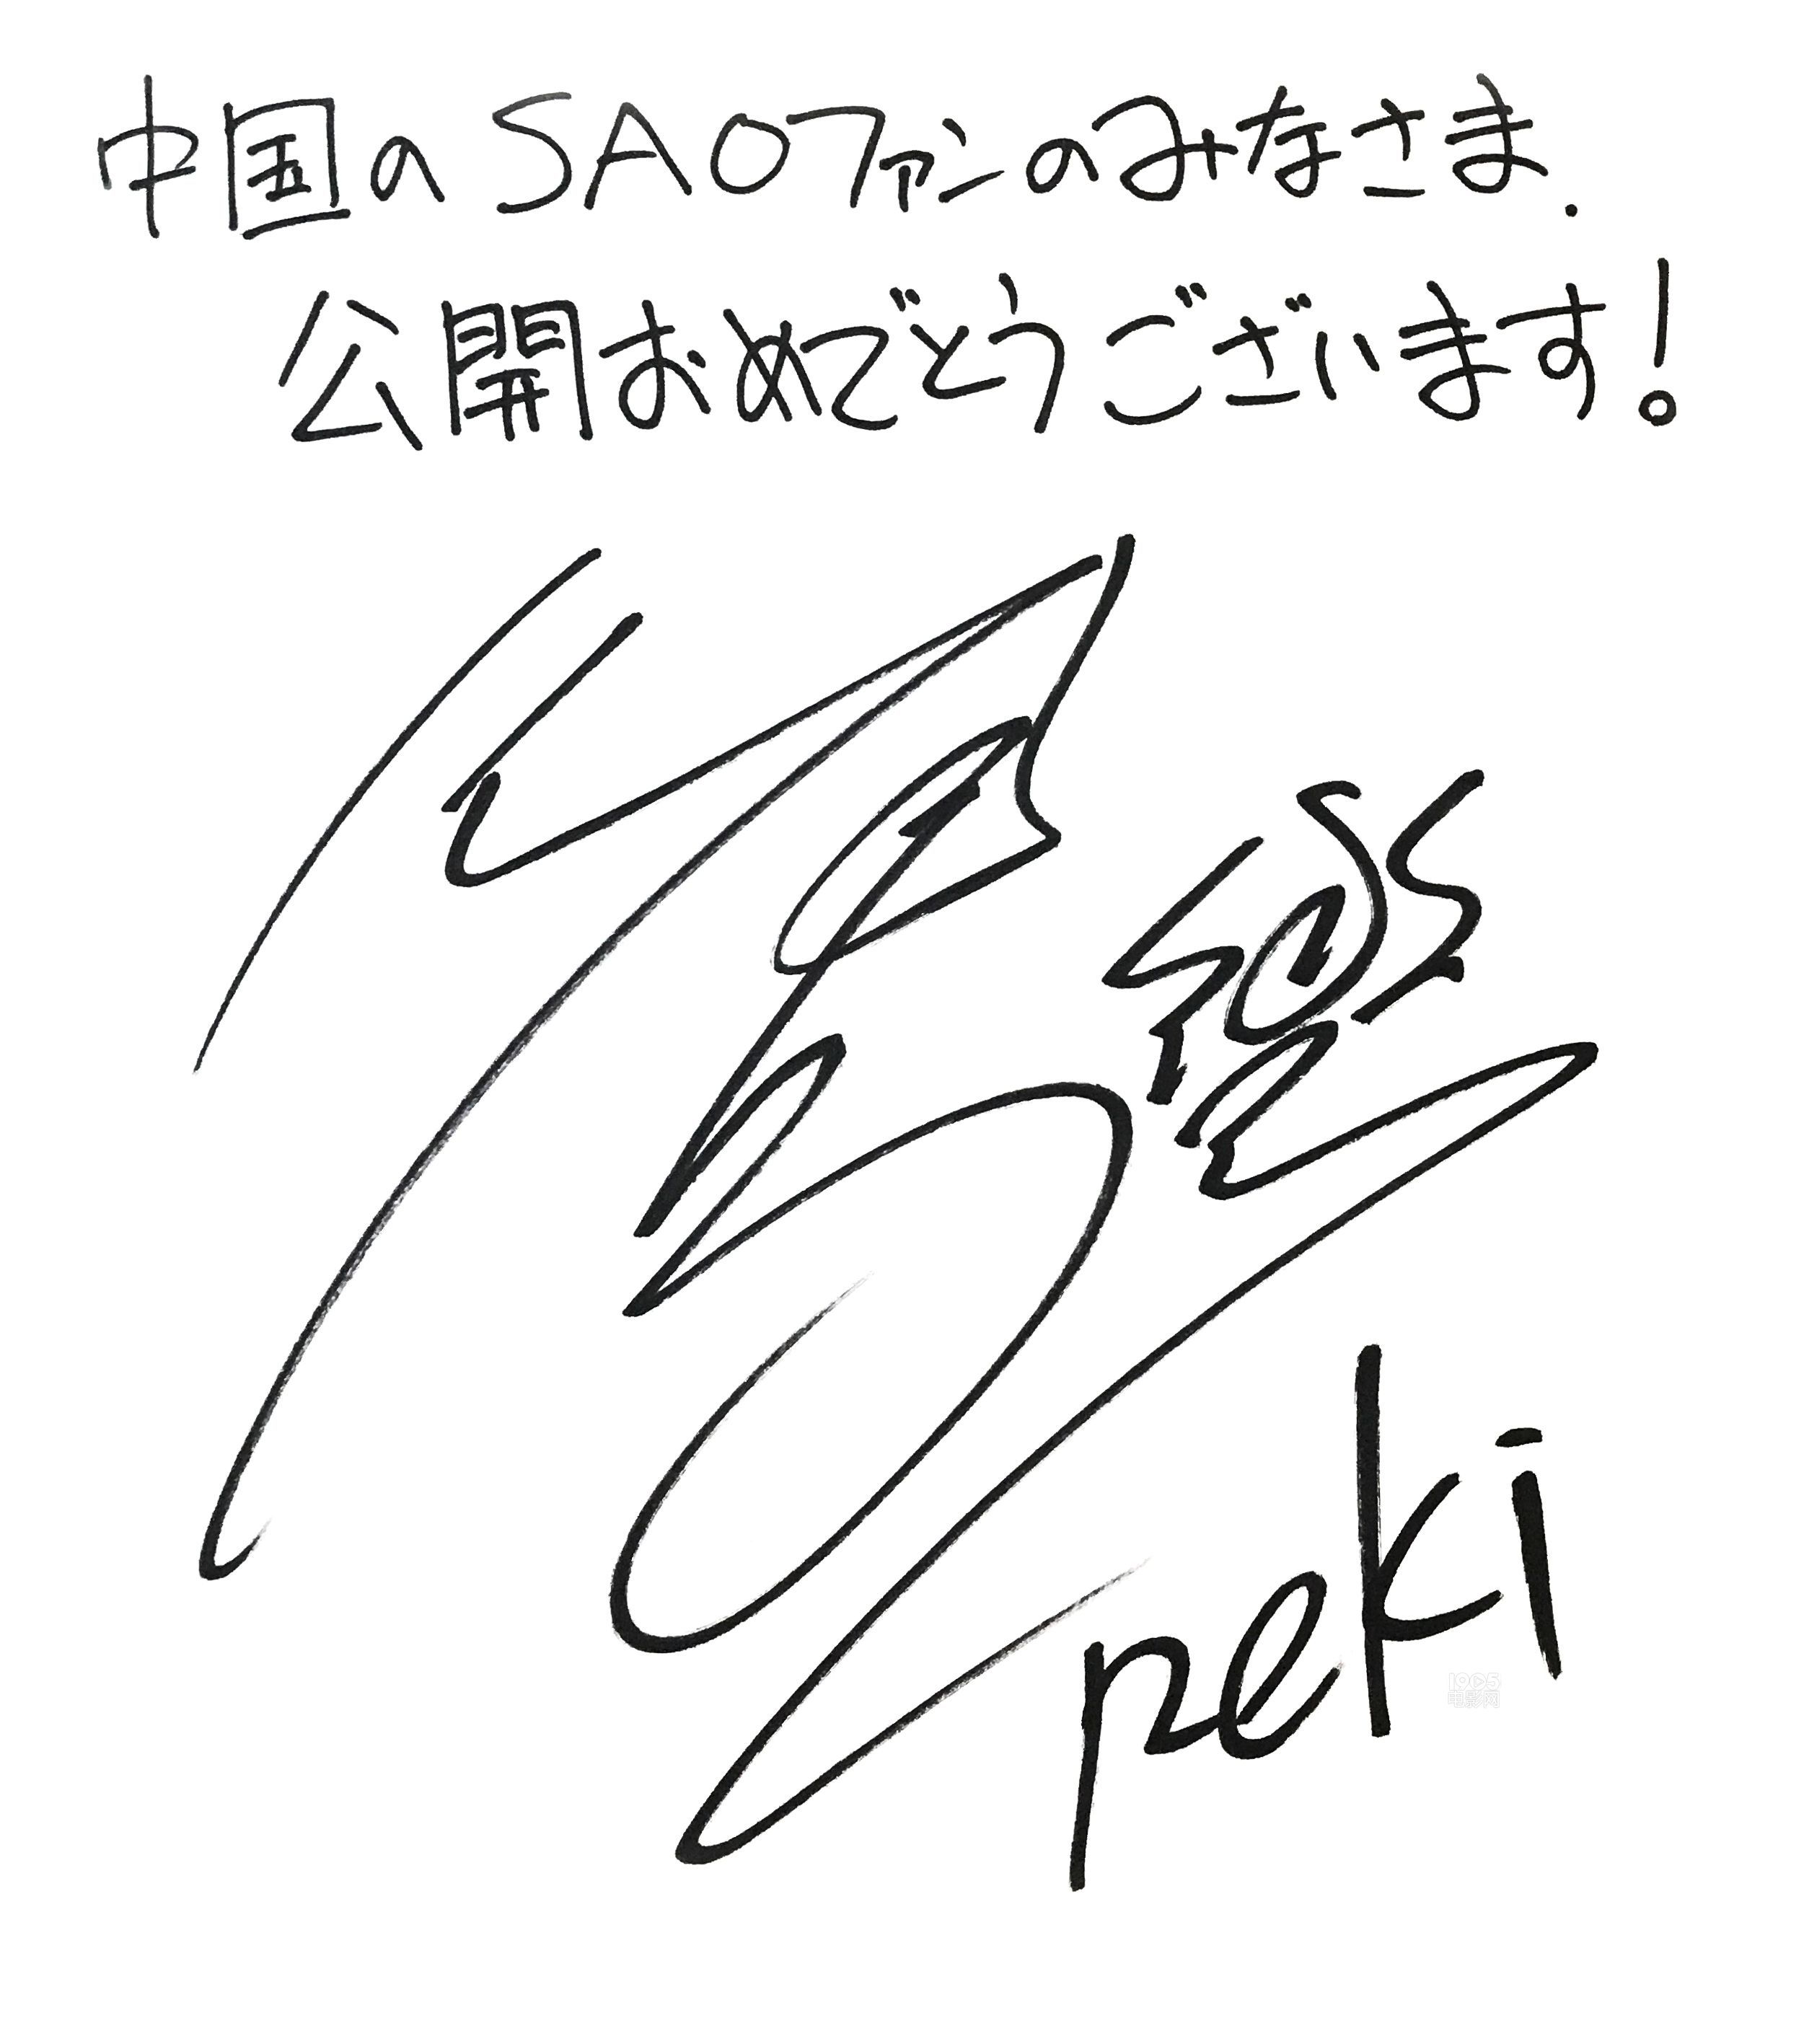 中国のSAOファンのみなさま.
公開おめでとうございます!
peki
1905
电影网